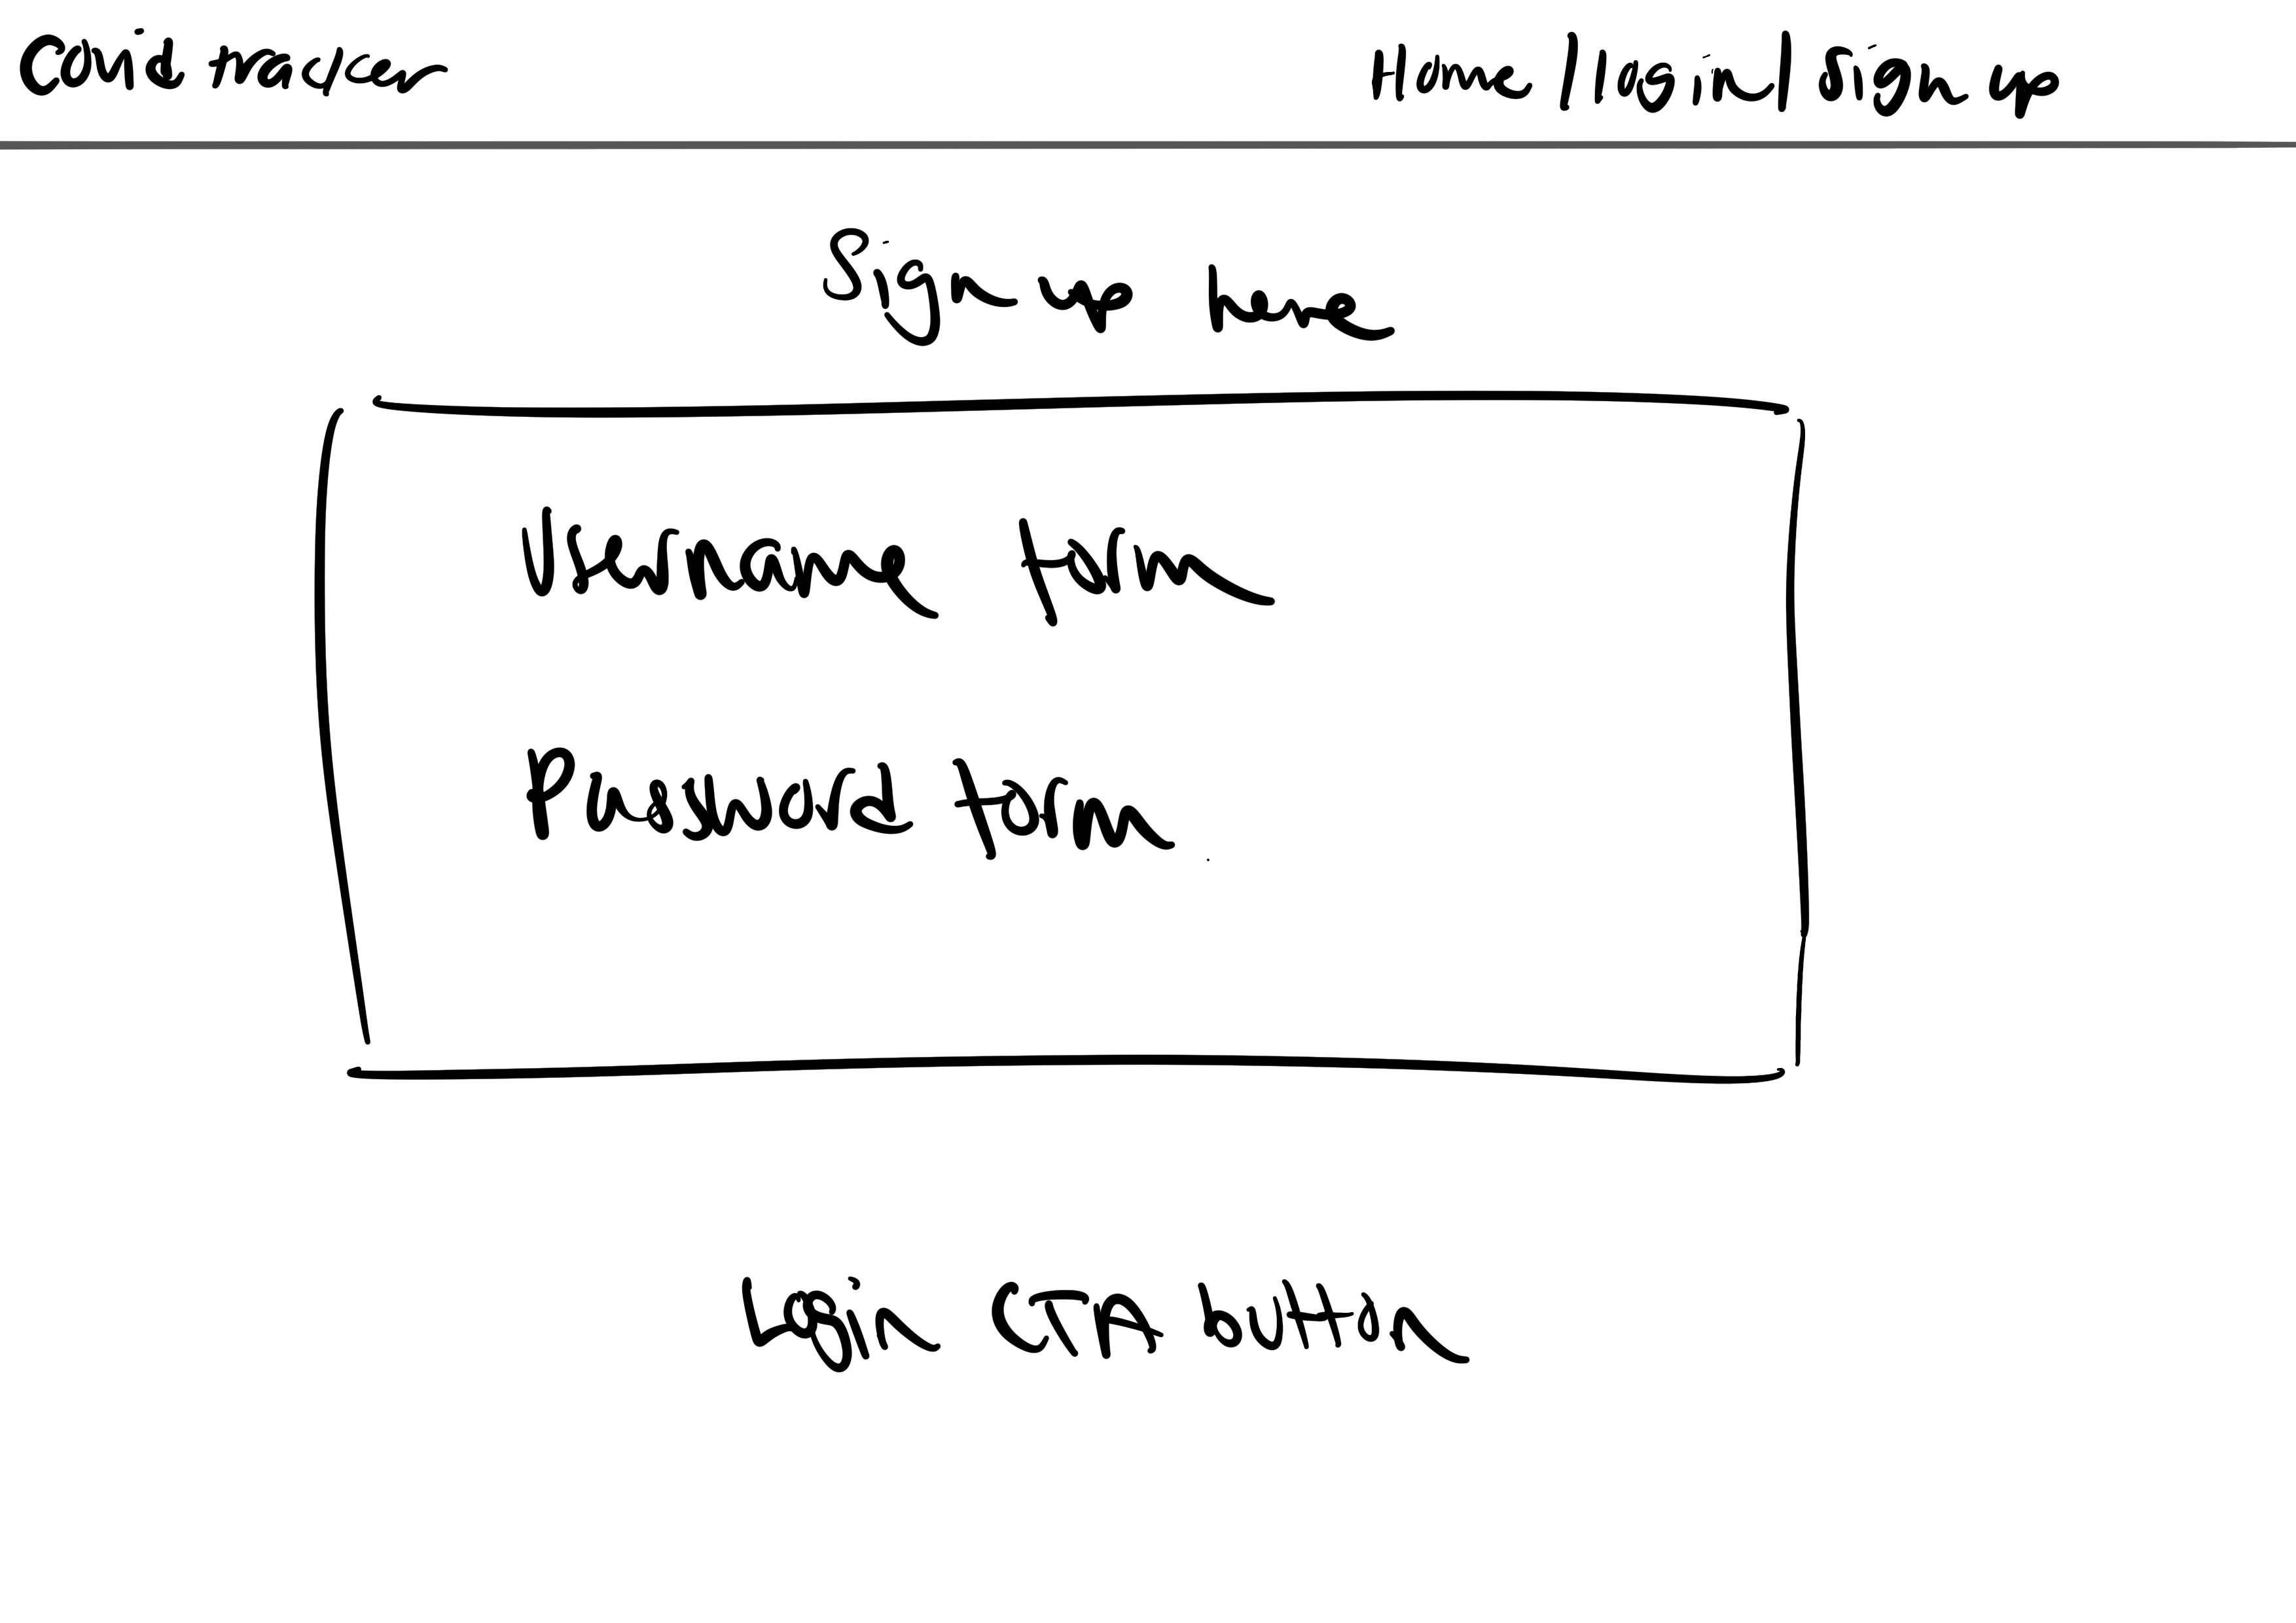 Covid tracker
Home / login / sign up
Sign up here
Username form
Password form
Login CTA button